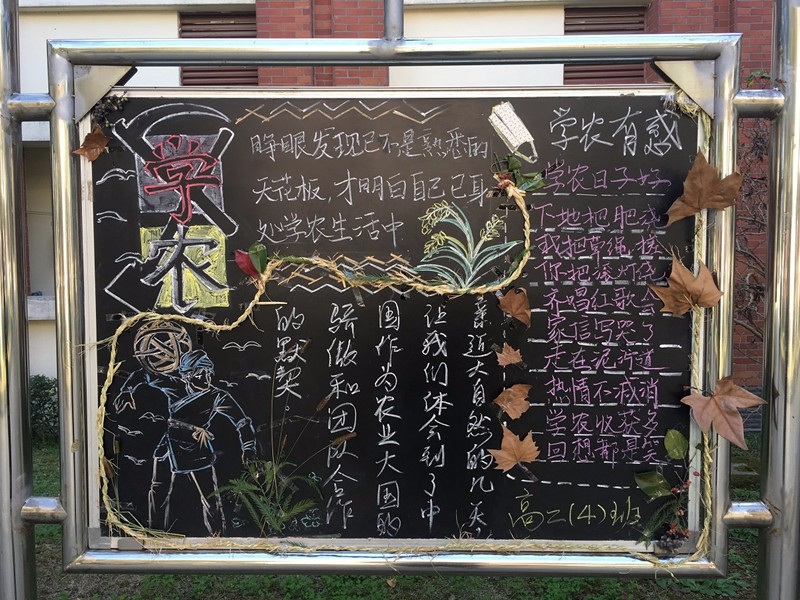 学农
睁眼发现已不是熟悉的
天花板，才明白自己已身
处学农生活中
亲近大自然的几天，
让我们体会到了中
国作为农业大国的
骄傲和团队合作
的默契。
学农有感
学农日子好
下地把肥
我把草绳
你把
齐唱红歌会
家信写哭了
走在泥泞道
热情不减消
学农收获多
回想都是笑
高二(4)班